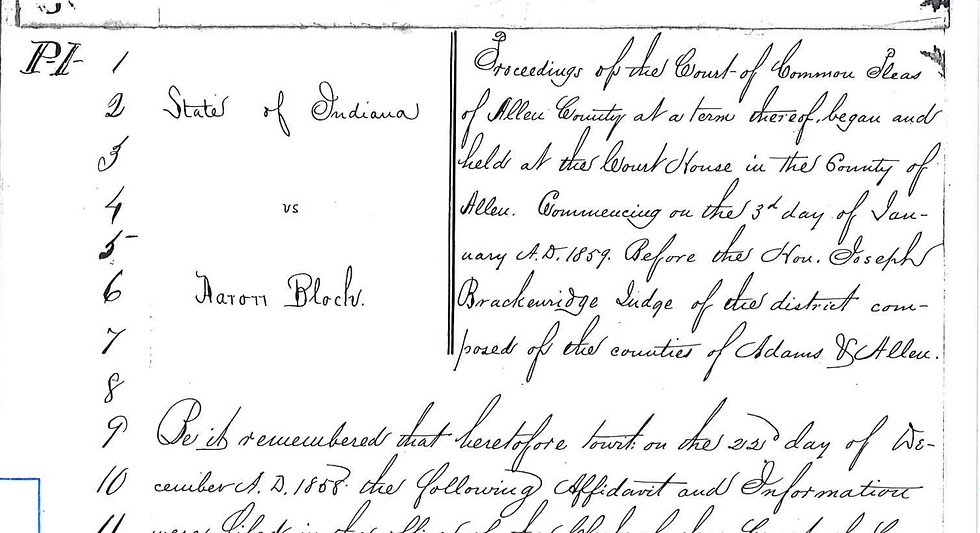 P.1.
1 Proceedings of the Court of Common Pleas
2 State of Indiana of Allen County at a term thereof, began and
3 held at the Court House in the County of
4 vs Allen. Commencing on the 3d day of Jan-
5 uary A.D. 1859. Before the Hon. Joseph
6 Aaron Bloch. Brackenridge Judge of the district com-
7 posed of the counties of Adams & Allen.
8
9 Be it remembered that heretofore towit: on the 22d day of De-
10 cember A.D. 1858. the following Affidavit and Information
11 were filed in the office of the Clerk of